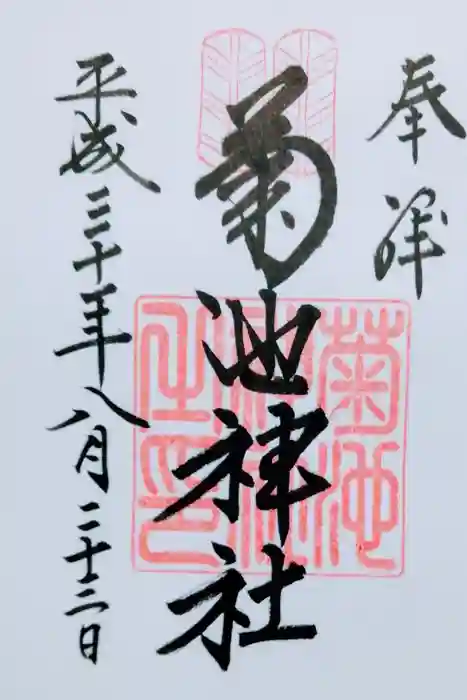 奉拝
菊池神社
平成三十年八月二十二日
菊池
神社
之印